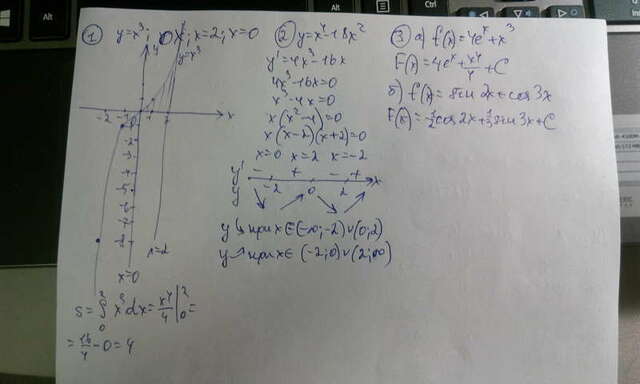 ① y=x³; OX; x=2; x=0
y
y=x³
x
-2 -1 0 1
-2
-3
-4
-5
-6
-7
-8
x=2
x=0
S = ∫₀² x³dx = x⁴/4 |₀² =
= 16/4 - 0 = 4
② y=x⁴+8x²
y'=4x³-16x
4x³-16x=0
x³-4x=0
x(x²-4)=0
x(x-2)(x+2)=0
x=0 x=2 x=-2
y' - + - +
y -2 0 2 x
y ↘ при x∈(-∞;-2)∪(0;2)
y ↗ при x∈ (-2;0)∪(2;∞)
③ а) f(x)=4eˣ+x³
F(x)=4eˣ+x⁴/4+C
б) f(x)=sin2x+cos3x
F(x)=-1/2cos2x+1/3sin3x+C